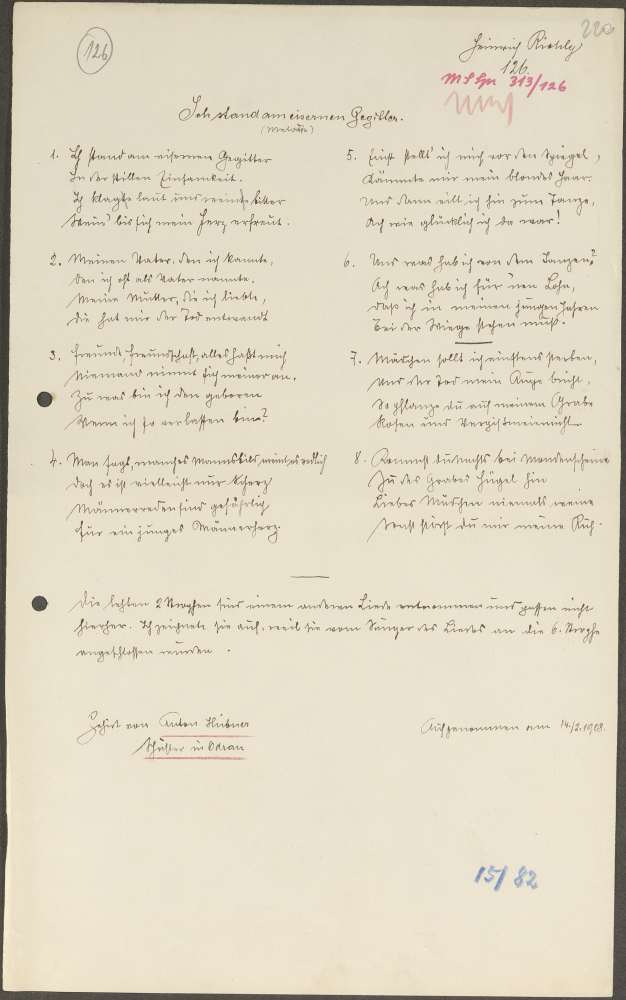 220
126
Heinrich Rietsch
126.
313/126
Ich stand am eisernen Gegitter.
(Melodie)
1. Ich stand am eisernen Gegitter
In der stillen Einsamkeit.
Ich klagte laut und weinte bitter
bis sich mein Herz erfreut.
2. Meinen Vater, den ich kannte,
Den ich oft als Vater nannte.
Meine Mutter, die ich liebte,
die hat mir der Tod entwandt
3. Freunde, Freundschaft, alles haßt mich
Niemand nimmt sich meiner an.
Zu was bin ich den geboren
Wenn ich so verlassen bin?
4. Man sagt, manches Mannsbild meint es redlich
doch es ist vielleicht nur Scherz
Männerreden sind gefährlich
für ein junges Männerherz.
5. Einst stellt' ich mich vor den Spiegel,
Kämmte mir mein blondes Haar.
Und dann eilt' ich hin zum Tanze,
Ach wie glücklich ich da war!
6. Und was hab ich von dem Tanzen?
Ach was hab ich für 'nen Lohn,
daß ich in meinen jungen Jahren
bei der Wiege stehen muß.
7. Mädchen sollt ich einstens sterben,
und der Tod mein Auge bricht,
So pflanze du auf meinem Grabe
Rosen und Vergißmeinnicht.
8. Kommst du nachts bei Mondenscheine
Zu des Grabes Hügel hin
Liebes Mädchen niemals weine
sonst störst du mir meine Ruh.
Die letzten 2 Strophen sind einem anderen Liede entnommen und passen nicht
hierher. Ich zeichnete sie auf, weil sie vom Sänger des Liedes an die 6. Strophe
angeschlossen wurden.
Gehört von Anton Hübner
Schuster in Odrau
Aufgenommen am 14/2.1908.
15/82